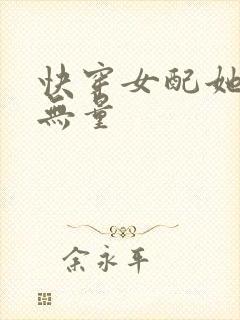 快穿女配她
無量
余永平